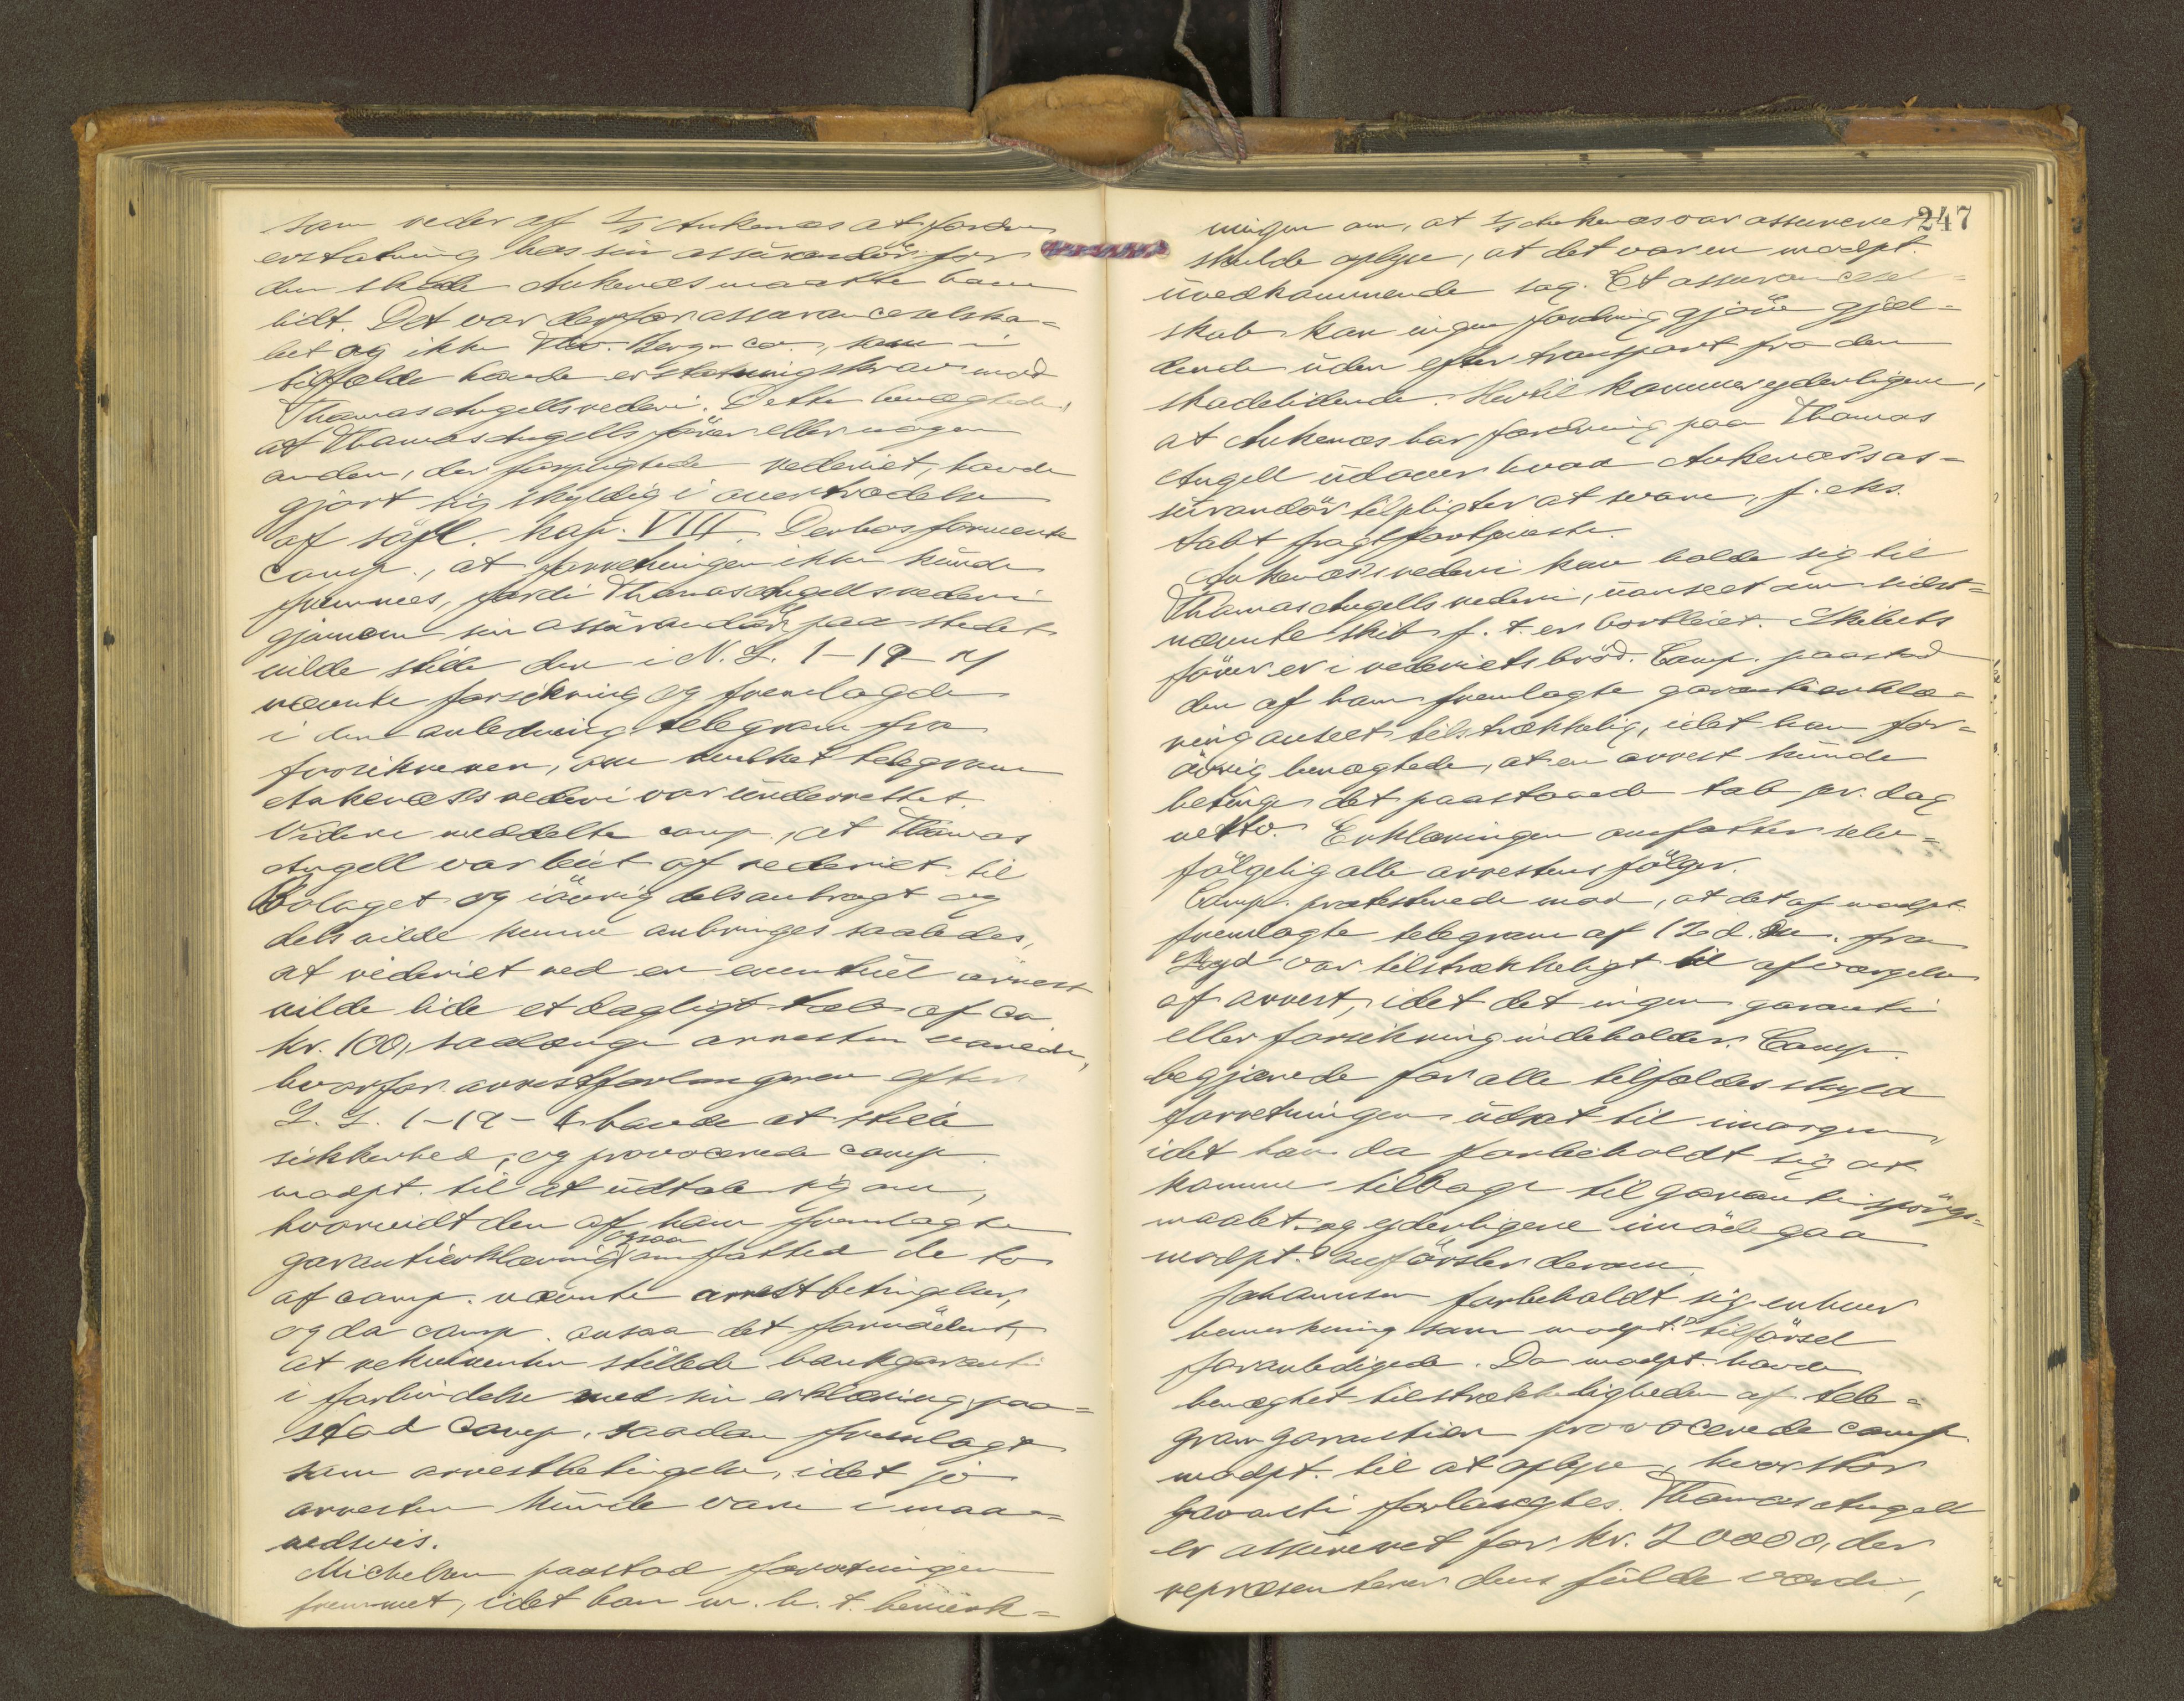 som reder af S/S Ankenæs at fordre
erstatning hos sin assürandör for
den skade Ankenæs maatte have
lidt. Det var derfor assuranceselska=
bet og ikke Thv. Berg & co., som i
tilfælde havde erstatningskrav mod
Thomas Angells rederi. Dette benægtede,
at Thomas Angells förer eller nogen
anden, der forpligtede rederiet, havde
gjort sig skyldig i overtrædelse
af söfl. kap. VIII. Derhos formente
comp., at forretningen ikke kunde
fremmes, fordi Thomas Angells rederi
gjennem sin assürandör paa stedet
vilde stille den i N. L. 1-19-4
nævnte forsikring og fremlagde
i den anledning telegram fra
forsikreren, om hvilket telegram
Ankenæs's rederi var ünderrettet.
Videre meddelte comp., at Thomas
Angell var leiet af rederiet til
Bolaget og iövrig dels anbragt og
dels vilde kunne anbringes saaledes,
at rederiet ved en eventüel arrest
vilde lide et dagligt tab af ca
kr. 100, saalænge arresten varede,
hvorfor arrestforlangeren efter
L. L. 1-19-6 havde at stille
sikkerhed, og provocerede comp.
modpt. til at üdtale sig om,
hvorvidt den af ham fremlagte
garantierklæring ogsaa omfatted de to
af comp. nævnte arrestbetingelser,
og da comp. ansaa det fornödent,
at rekvirenten stillede bankgaranti
i forbindelse med sin erklæring, paa=
stod comp. saadan fremlagt
som arrestbetingelse, idet jo
arresten künde vare i maa=
nedsvis.
Michelsen paastod forretningen
fremmet, idet han m. h. t. bemerk=
247
ningen om, at S/S Ankenæs var assureret
skulde oplyse, at det var en modpt.
üvedkommende sag. Et assurancesel=
skab kan ingen fordring gjöre gjæl=
dende üden efter transport fra den
skadelidende. Hertil kommer yderligere,
at Ankenæs har fordring paa Thomas
Angell üdover hvad Ankenæs's as=
sürandör tilpligter at svare, f. eks.
tabt fragtfortjeneste.
Ankenæs's rederi kan holde sig til
Thomas Angells rederi, üanseet om sidst=
nævnte skib f. t. er bortleiet. Skibets
förer er i rederiets bröd. Comp. paastod
den af ham fremlagte garantierklæ=
ring anseet tilstrækkelig, idet han for=
övrig benægtede, at en arrest künde
betinge det paastaaede tab pr. dag
netto. Erklæringen omfatter selv=
fölgelig alle arrestens fölger.
Comp. protesterede mod, at det af modpt.
fremlagte telegram af 12 d. m. fra
Lloyd var tilstrækkeligt til afværgelse
af arrest, idet det ingen garanti
eller forsikring indeholder. Comp.
begjærede for alle tilfældes skyld
forretningen üdsat til imorgen,
idet han da forbeholdt sig at
komme tilbage til garantispörgs=
maalet og yderligere imödegaa
modpt.s anförsler derom.
Johannsen forbeholdt sig enhver
bemerkning som modpt.s tilförsel
foranledigede. Da modpt. havde
benægtet tilstrækkeligheden af tele=
gramgarantien provocerede comp.
modpt. til at oplyse, hvor stor
garanti forlangtes. Thomas Angell
er assüreret for kr. 20000, der
repræsenterer dens fulde værdi,